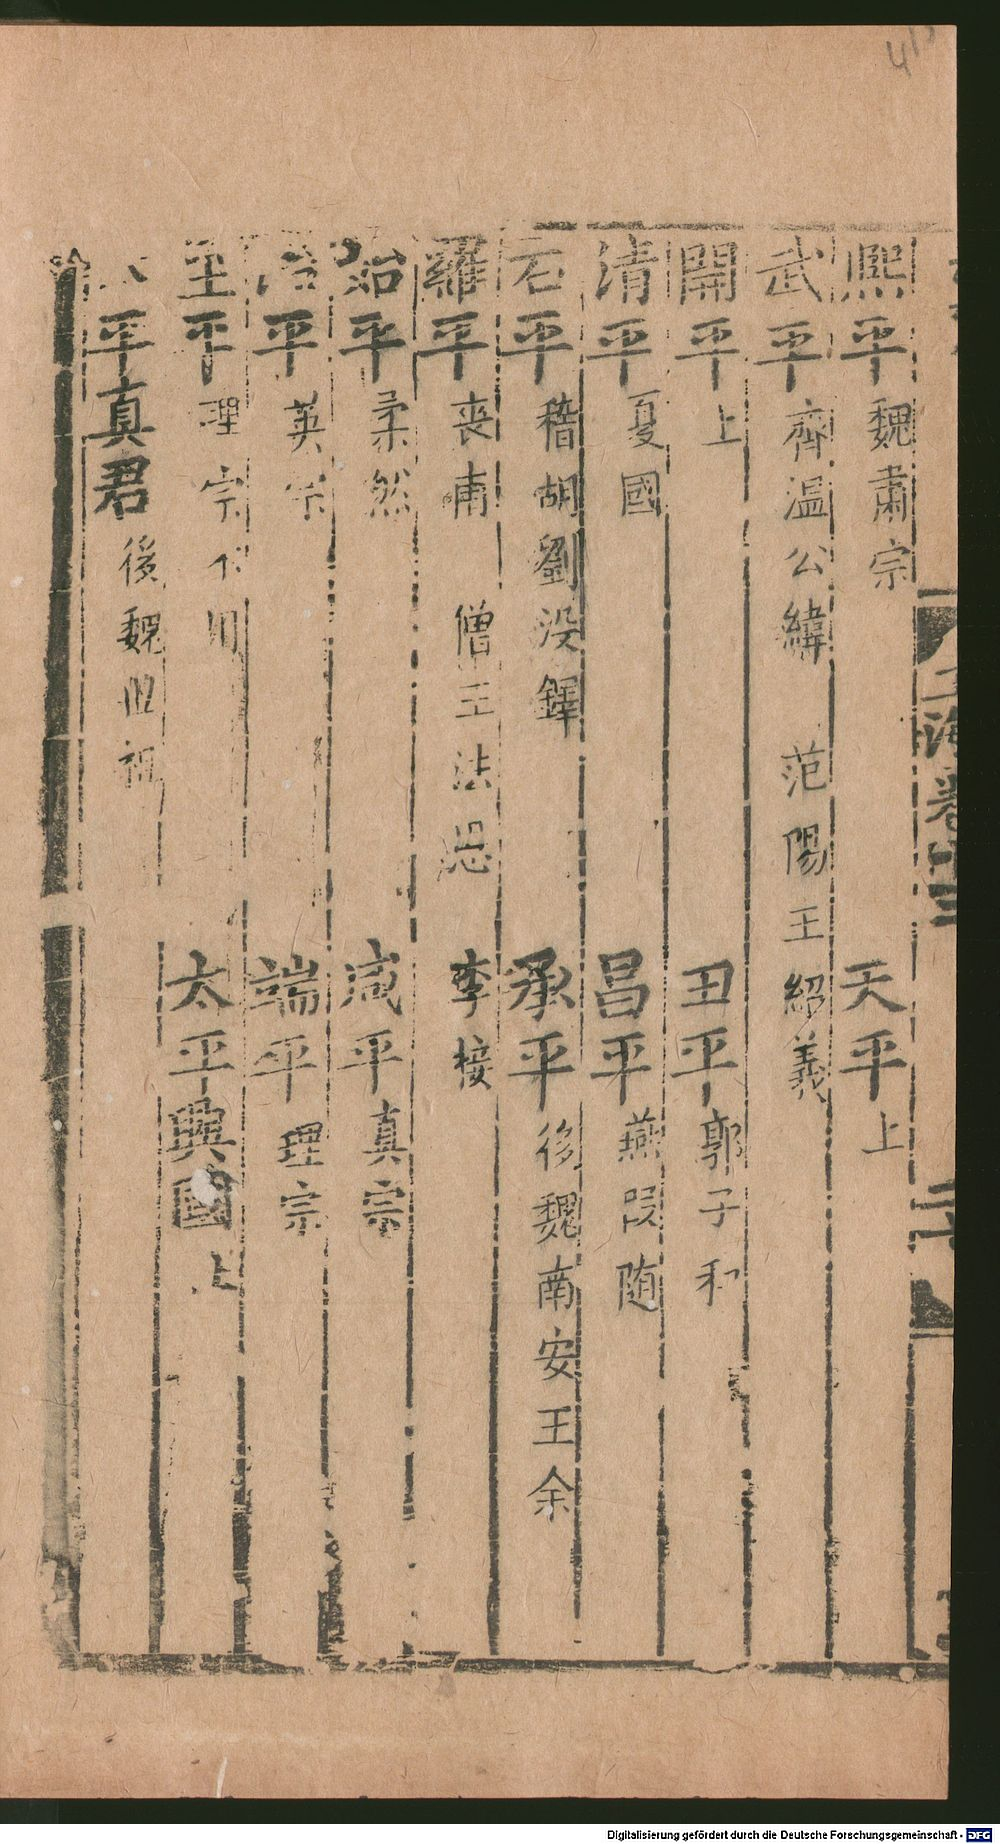 熙平 魏肅宗 天平 上
武平 齊温公緯 范陽王紹義
開平 上 丑平 郭子和
清平 夏國 昌平 燕段随
石平 稽胡劉没鐸 承平 後魏南安王余
羅平 喪甫 僧王法恩 李接
始平 柔然 咸平 真宗
治平 英宗 端平 理宗
至平 理宗不用 太平興國 上
平真君 後魏世祖
海卷十三
二十
Digitalisierung gefördert durch die Deutsche Forschungsgemeinschaft - DFG